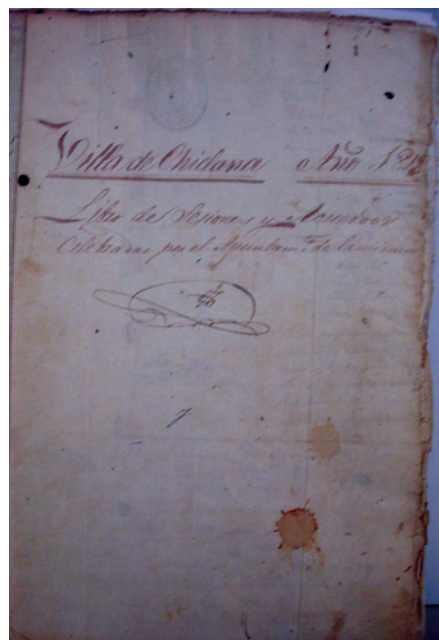 Villa de Chiclana Año 18
Libro de Sesiones y Acuerdos
Celebradas por el Ayuntam.to de la misma